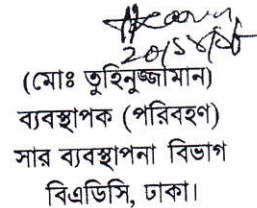 (মোঃ তুহিনুজ্জামান)
ব্যবস্থাপক (পরিবহণ)
সার ব্যবস্থাপনা বিভাগ
বিএডিসি, ঢাকা।